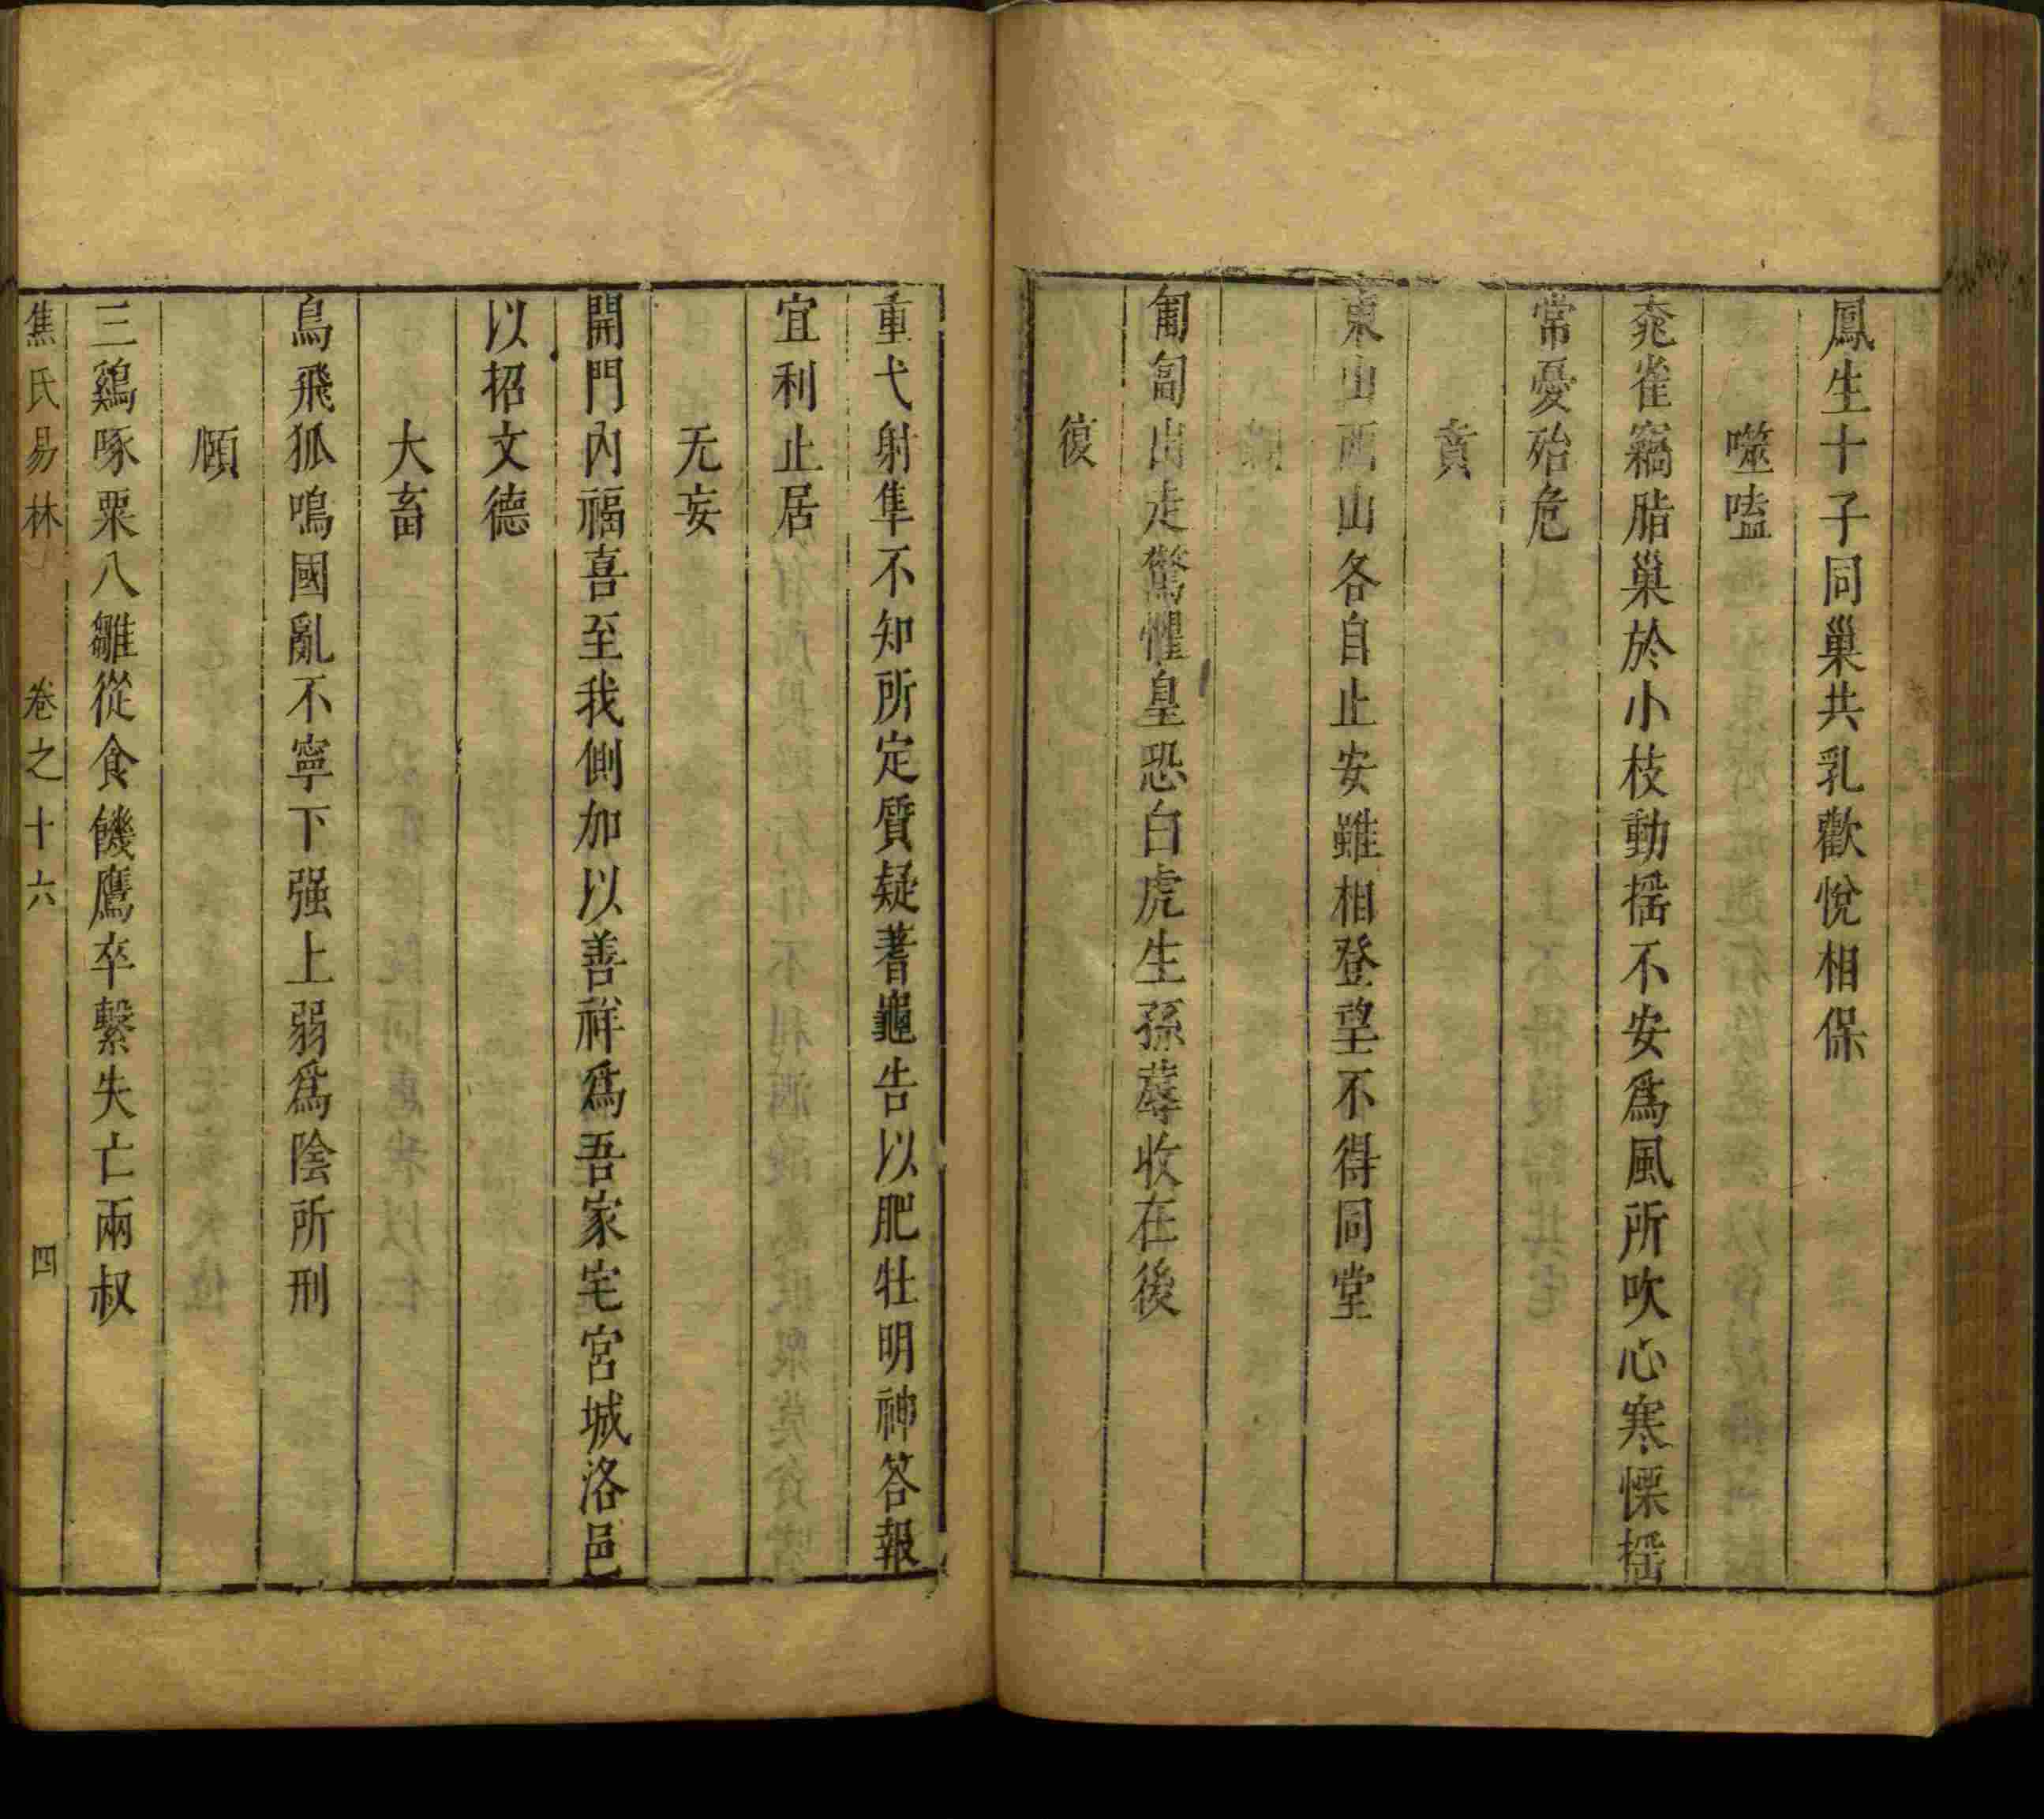 鳳生十子同巢共乳歡悅相保
噬嗑
桼雀竊脂巢於小枝動搖不安爲風所吹心寒慄搖
常憂殆危
賁
東山西山各自止安雖相登望不得同堂
剝
匍匐出走驚懼皇恐白虎生孫蓐收在後
復
重弋射隼不知所定質疑蓍龜告以肥牡明神答報
宜利止居
无妄
開門內福喜至我側加以善祥爲吾家宅宮城洛邑
以招文德
大畜
鳥飛狐鳴國亂不寧下强上弱爲陰所刑
頤
三鷄啄粟八雛從食饑鷹卒繫失亡兩叔
焦氏易林 卷之十六 四